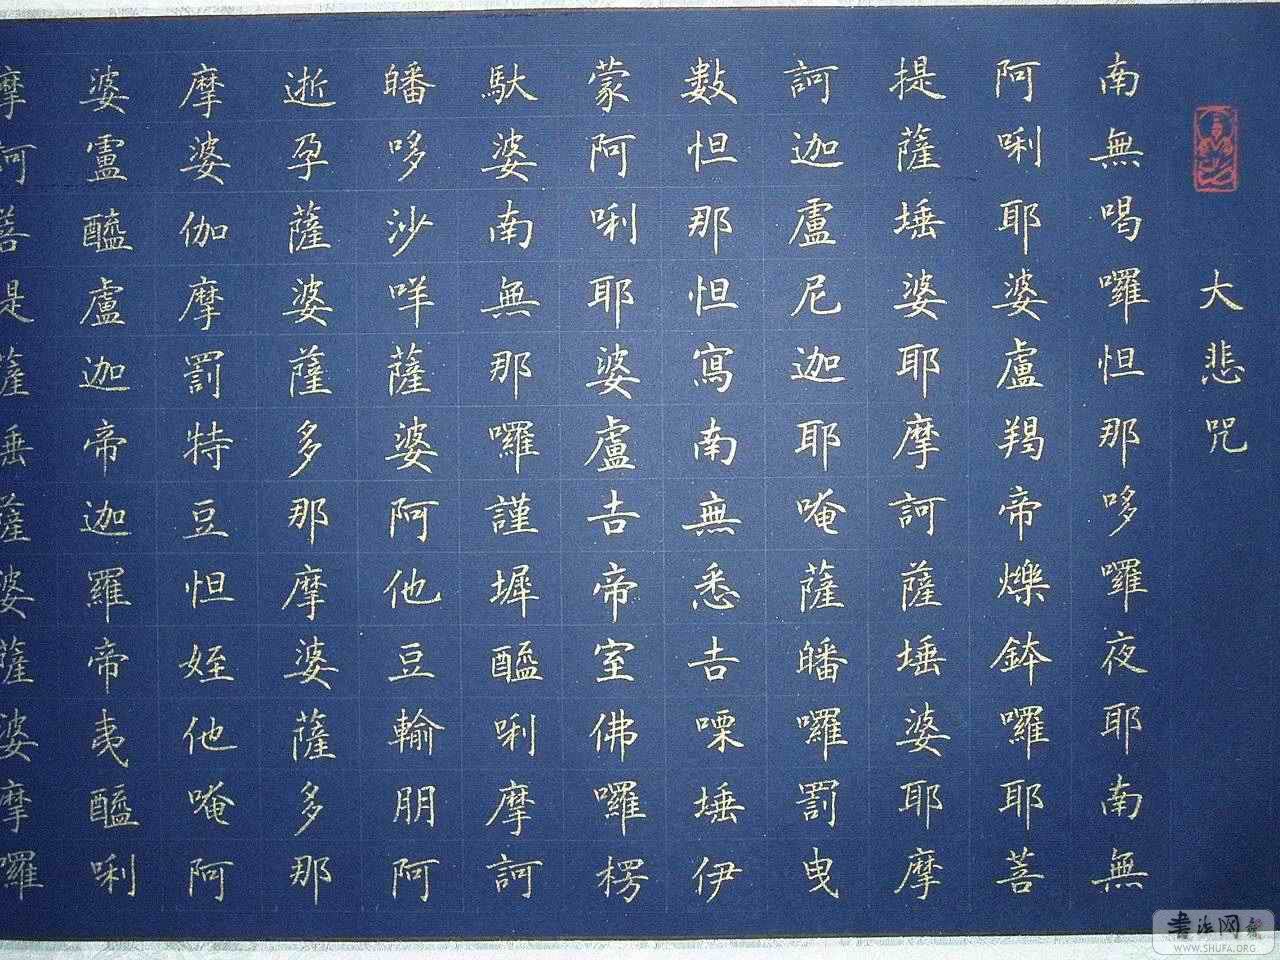 大悲咒
南無喝囉怛那哆囉夜耶南無
阿唎耶婆盧羯帝爍鉢囉耶菩
提薩埵婆耶摩訶薩埵婆耶摩
訶迦盧尼迦耶唵薩皤囉罰曳
數怛那怛寫南無悉吉㗚埵伊
蒙阿唎耶婆盧吉帝室佛囉楞
馱婆南無那囉謹墀醯唎摩訶
皤哆沙咩薩婆阿他豆輸朋阿
逝孕薩婆薩多那摩婆薩多那
摩婆伽摩罰特豆怛姪他唵阿
婆盧醯盧迦帝迦羅帝夷醯唎
摩訶菩提薩埵薩婆薩婆摩囉
WWW.SHUFA.ORG